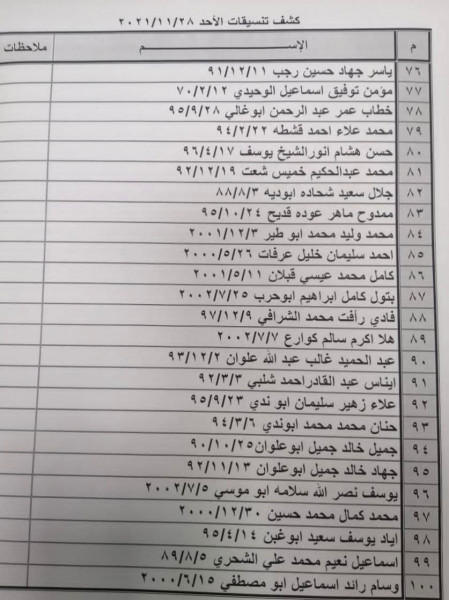 كشف تنسيقات الأحد ٢٠٢١/١١/٢٨
م الإســـم ملاحظات
٧٦ ياسر جهاد حسين رجب ٩١/١٢/١١
٧٧ مؤمن توفيق اسماعيل الوحيدي ٧٠/٢/١٢
٧٨ خطاب عمر عبد الرحمن ابوغالي ٩٥/٩/٢٨
٧٩ محمد علاء احمد قشطه ٩٤/٢/٢٢
٨٠ حسن هشام انورالشيخ يوسف ٩٦/٤/١٧
٨١ محمد عبدالحكيم خميس شعت ٩٢/١٢/١٩
٨٢ جلال سعيد شحاده ابوديه ٨٨/٨/٣
٨٣ ممدوح ماهر عوده قديح ٩٥/١٠/٢٤
٨٤ محمد وليد محمد ابو طير ٢٠٠١/١٢/٣
٨٥ احمد سليمان خليل عرفات ٢٠٠٠/٥/٢٦
٨٦ كامل محمد عيسي قبلان ٢٠٠١/٥/١١
٨٧ بتول كامل ابراهيم ابوحرب ٢٠٠٢/٧/٢٥
٨٨ فادي رأفت محمد الشرافي ٩٧/١٢/٩
٨٩ هلا اكرم سالم كوارع ٢٠٠٢/٧/٧
٩٠ عبد الحميد غالب عبد الله علوان ٩٣/١٢/٢
٩١ ايناس عبد القادراحمد شلبي ٩٢/٣/٣
٩٢ علاء زهير سليمان ابو ندي ٩٥/٩/٢٣
٩٣ حنان محمد محمد ابوندي ٩٤/٣/٦
٩٤ جميل خالد جميل ابوعلوان ٩٠/١٠/٢٥
٩٥ جهاد خالد جميل ابوعلوان ٩٢/١١/١٣
٩٦ يوسف نصر الله سلامه ابو موسي ٢٠٠٢/٧/٥
٩٧ محمد كمال محمد حسين ٢٠٠٠/١٢/٣٠
٩٨ اياد يوسف سعيد ابوغبن ٩٥/٤/١٤
٩٩ اسماعيل نعيم محمد علي الشحري ٨٩/٨/٥
١٠٠ وسام رائد اسماعيل ابو مصطفي ٢٠٠٠/٦/١٥